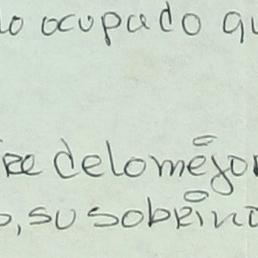 lo ocupado qu
re delo mējor
o, su sobrīno